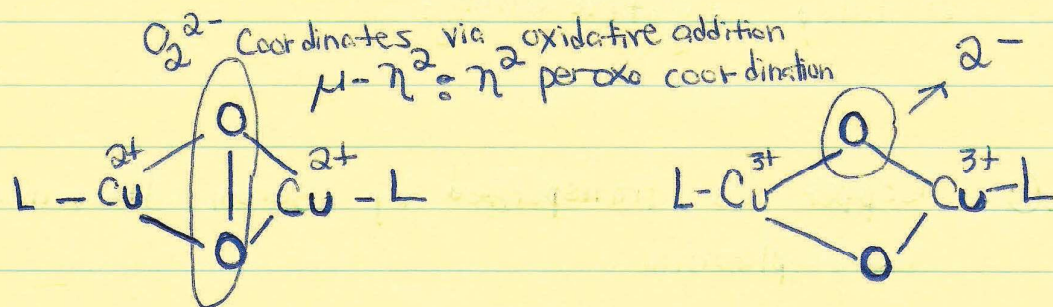 O₂²⁻ Coordinates via oxidative addition
μ-η²:η² peroxo coordination
2-
O O
2+ 2+ 3+ 3+
L-Cu Cu-L L-Cu Cu-L
O O